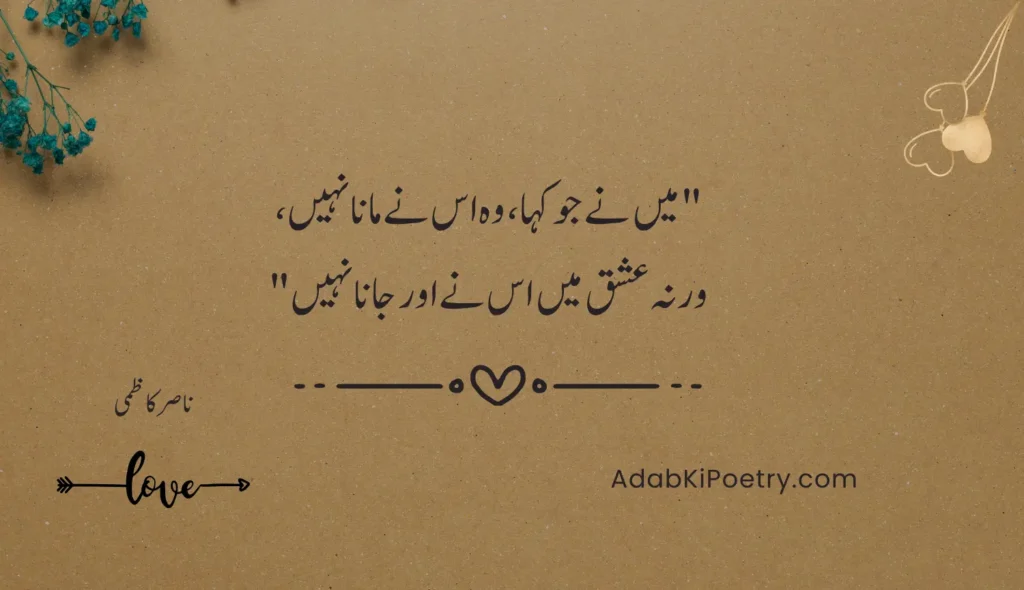 "میں نے جو کہا، وہ اس نے مانا نہیں،
ورنہ عشق میں اس نے اور جانا نہیں"
ناصر کاظمی
love
AdabKiPoetry.com